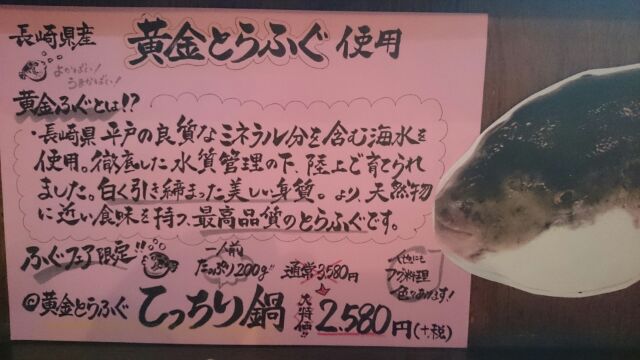 長崎県産
黄金とらふぐ 使用
よかばい!
うまかばい!
黄金ふぐとは!?
・長崎県 平戸の良質なミネラル分を含む海水を
使用。徹底した水質管理の下、陸上で育てられ
ました。白く引き締まった美しい身質。より、天然物
に近い食味を持つ、最高品質のとらふぐです。
ふぐフェア限定!!
一人前
たっぷり200g!!
通常3,580円
他にも
フグ料理
色々あります!
@黄金とらふぐ てっちり鍋 大特価!! 2,580円(+税)